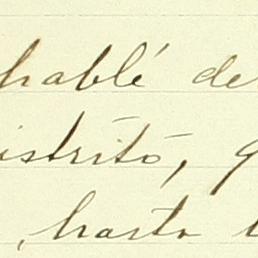 hablé de
istrito, q
, hasta l